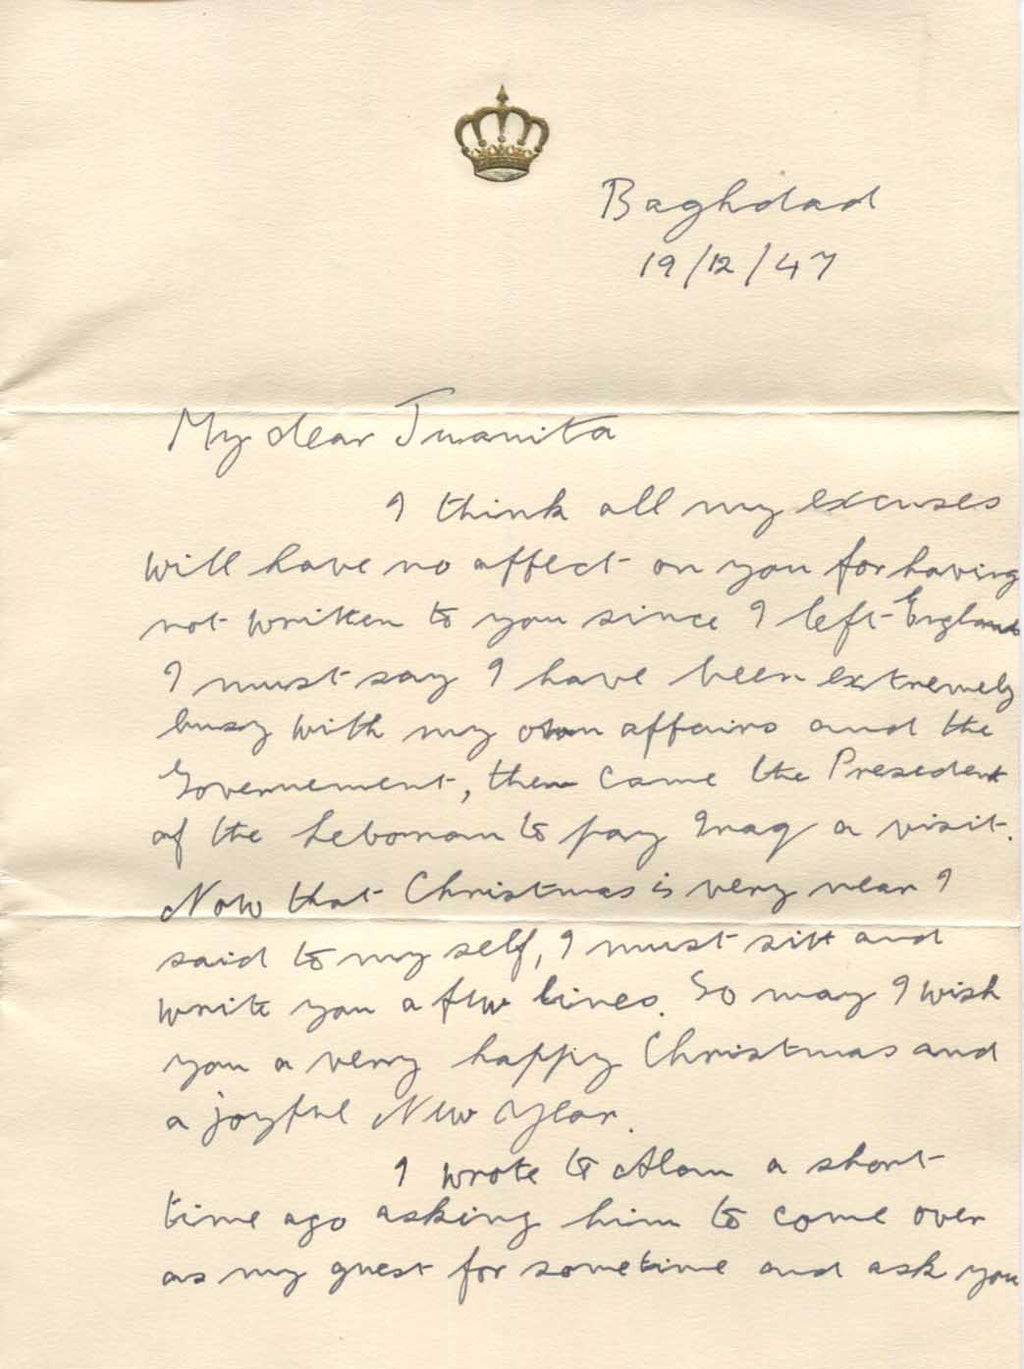 Baghdad
19/12/47
My dear Juanita
I think all my excuses
will have no affect on you for having
not written to you since I left England
I must say I have been extremely
busy with my own affairs and the
Governement, then came the Presedent
of the Lebonan to pay Iraq a visit.
Now that Christmas is very near I
said to my self, I must sitt and
write you a few lines. So may I wish
you a very happy Christmas and
a joyful New Year.
I wrote to Alan a short
time ago asking him to come over
as my guest for sometime and ask you